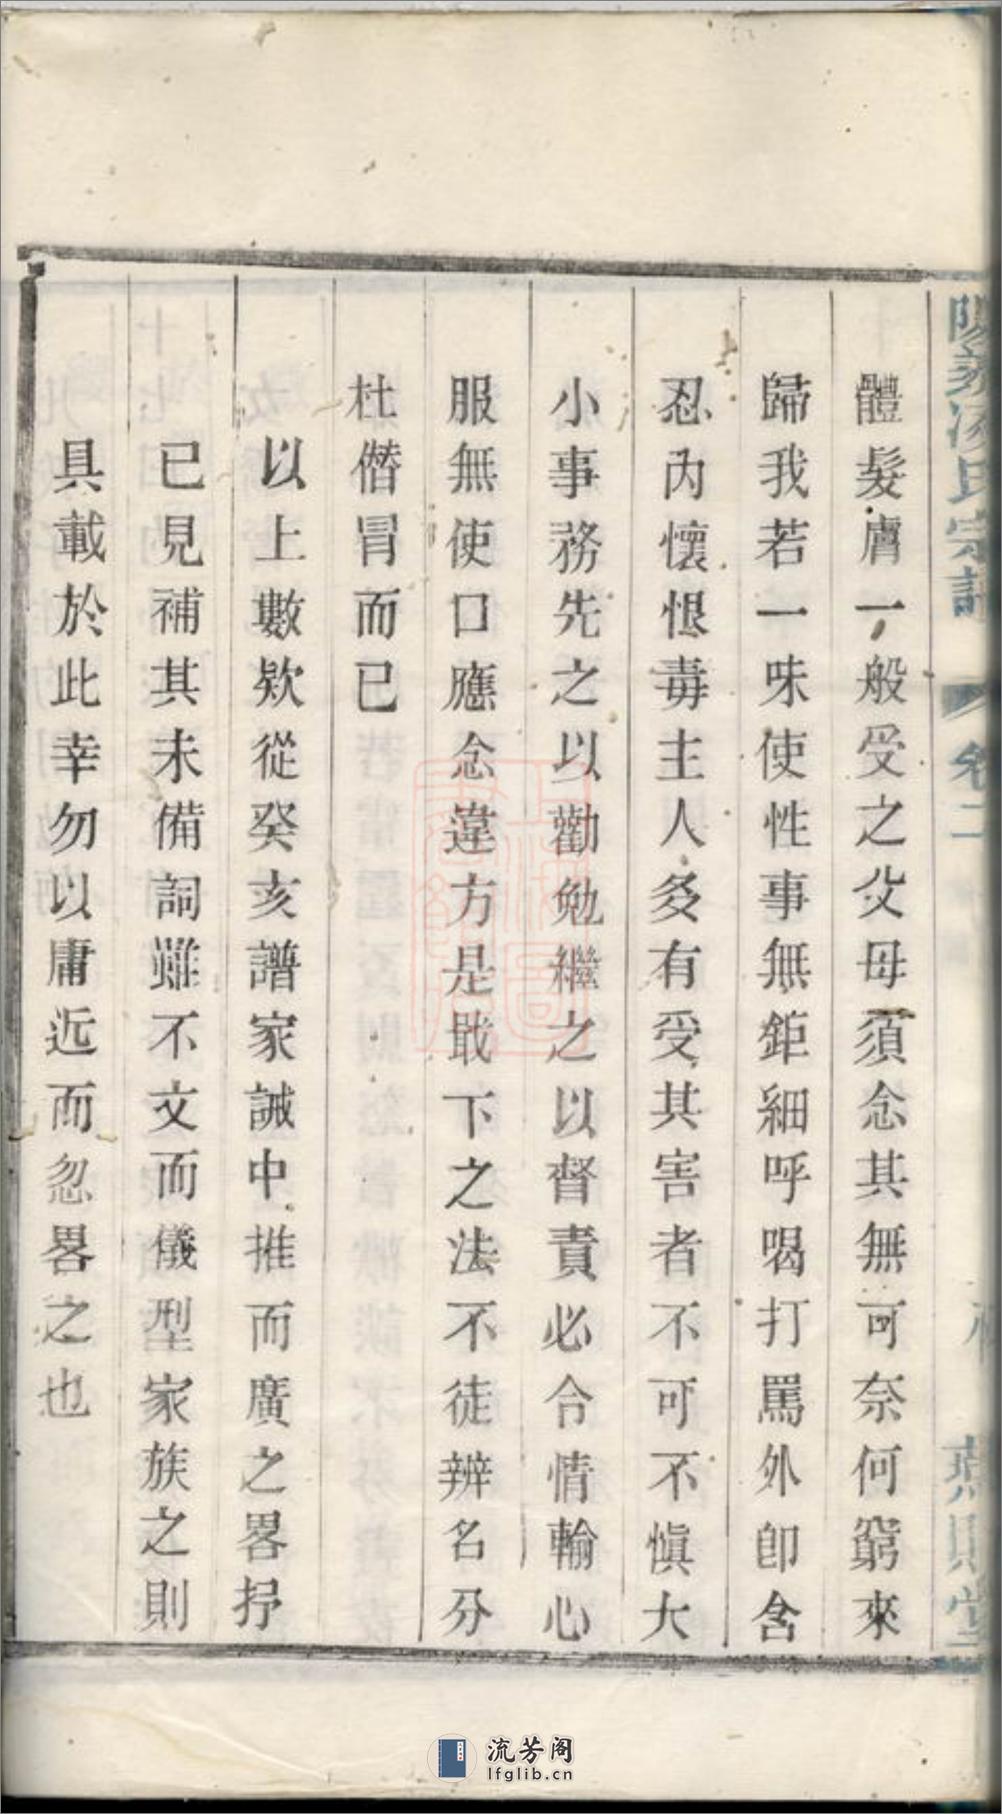 體髮膚一般受之父母須念其無可奈何窮來
歸我若一味使性事無鉅細呼喝打罵外卽含
忍內懷恨毒主人多有受其害者不可不慎大
小事務先之以勸勉繼之以督責必令情輸心
服無使口應念違方是戢下之法不徒辨名分
杜僭冒而已
以上數欵從癸亥譜家誡中推而廣之畧抒
已見補其未備詞雖不文而儀型家族之則
具載於此幸勿以庸近而忽畧之也
氏宗譜
卷二
流芳阁
lfglib.cn